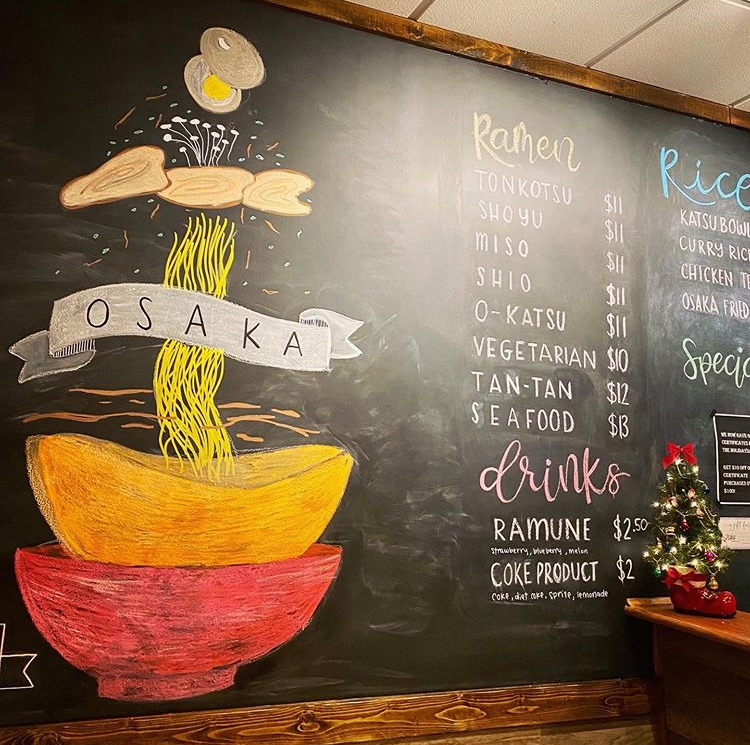 OSAKA
Ramen
TONKOTSU $11
SHOYU $11
MISO $11
SHIO $11
O-KATSU $11
VEGETARIAN $10
TAN-TAN $12
SEAFOOD $13
drinks
RAMUNE $2.50
strawberry, blueberry, melon
COKE PRODUCT $2
Coke, diet coke, sprite, lemonade
Rice
KATSU BOWL
CURRY RICE
CHICKEN
OSAKA FRIED
Special
WE NOW HAVE
CERTIFICATES
THE HOLIDAYS!
GET $10 OFF
CERTIFICATE
PURCHASES
$100!